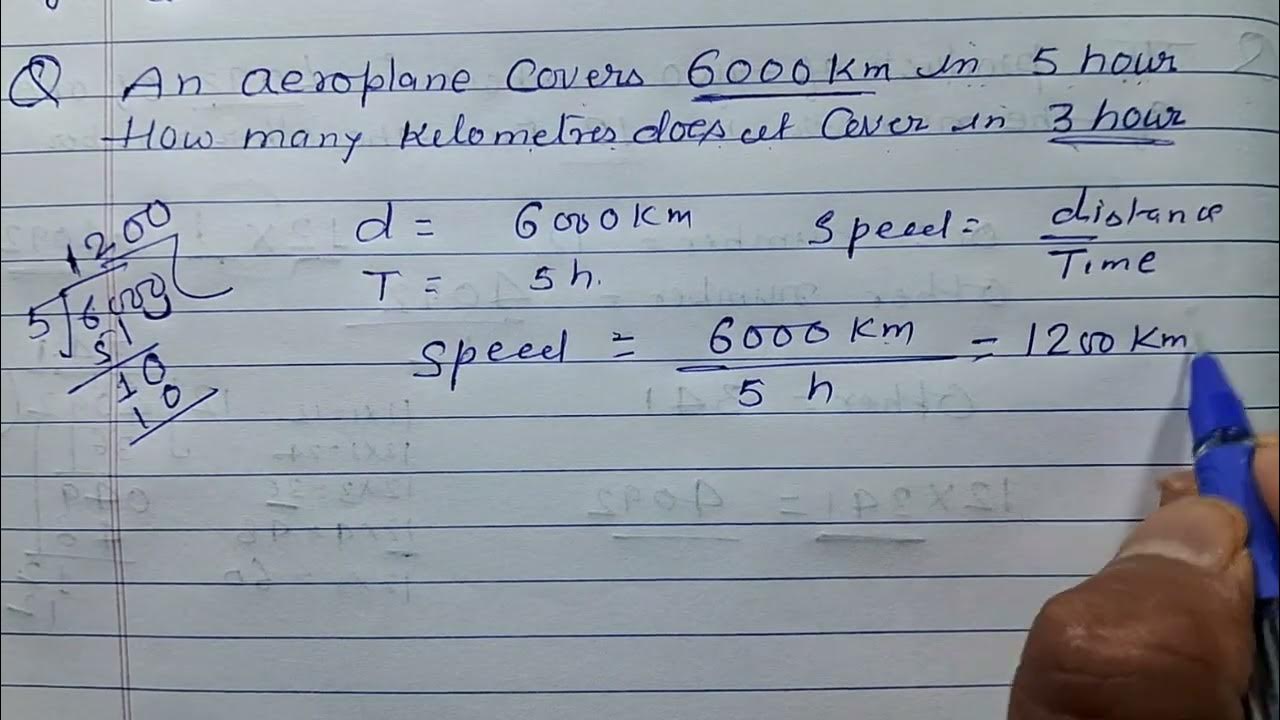 Q An aeroplane Covers 6000 Km in 5 hour
How many Kelometres does it Cover in 3 hour
d = 6000 Km Speed = distance
Time
T = 5 h.
Speed = 6000 Km = 1200 Km
5 h
1200
5 6000
5
10
10
12 x 341 = 4092